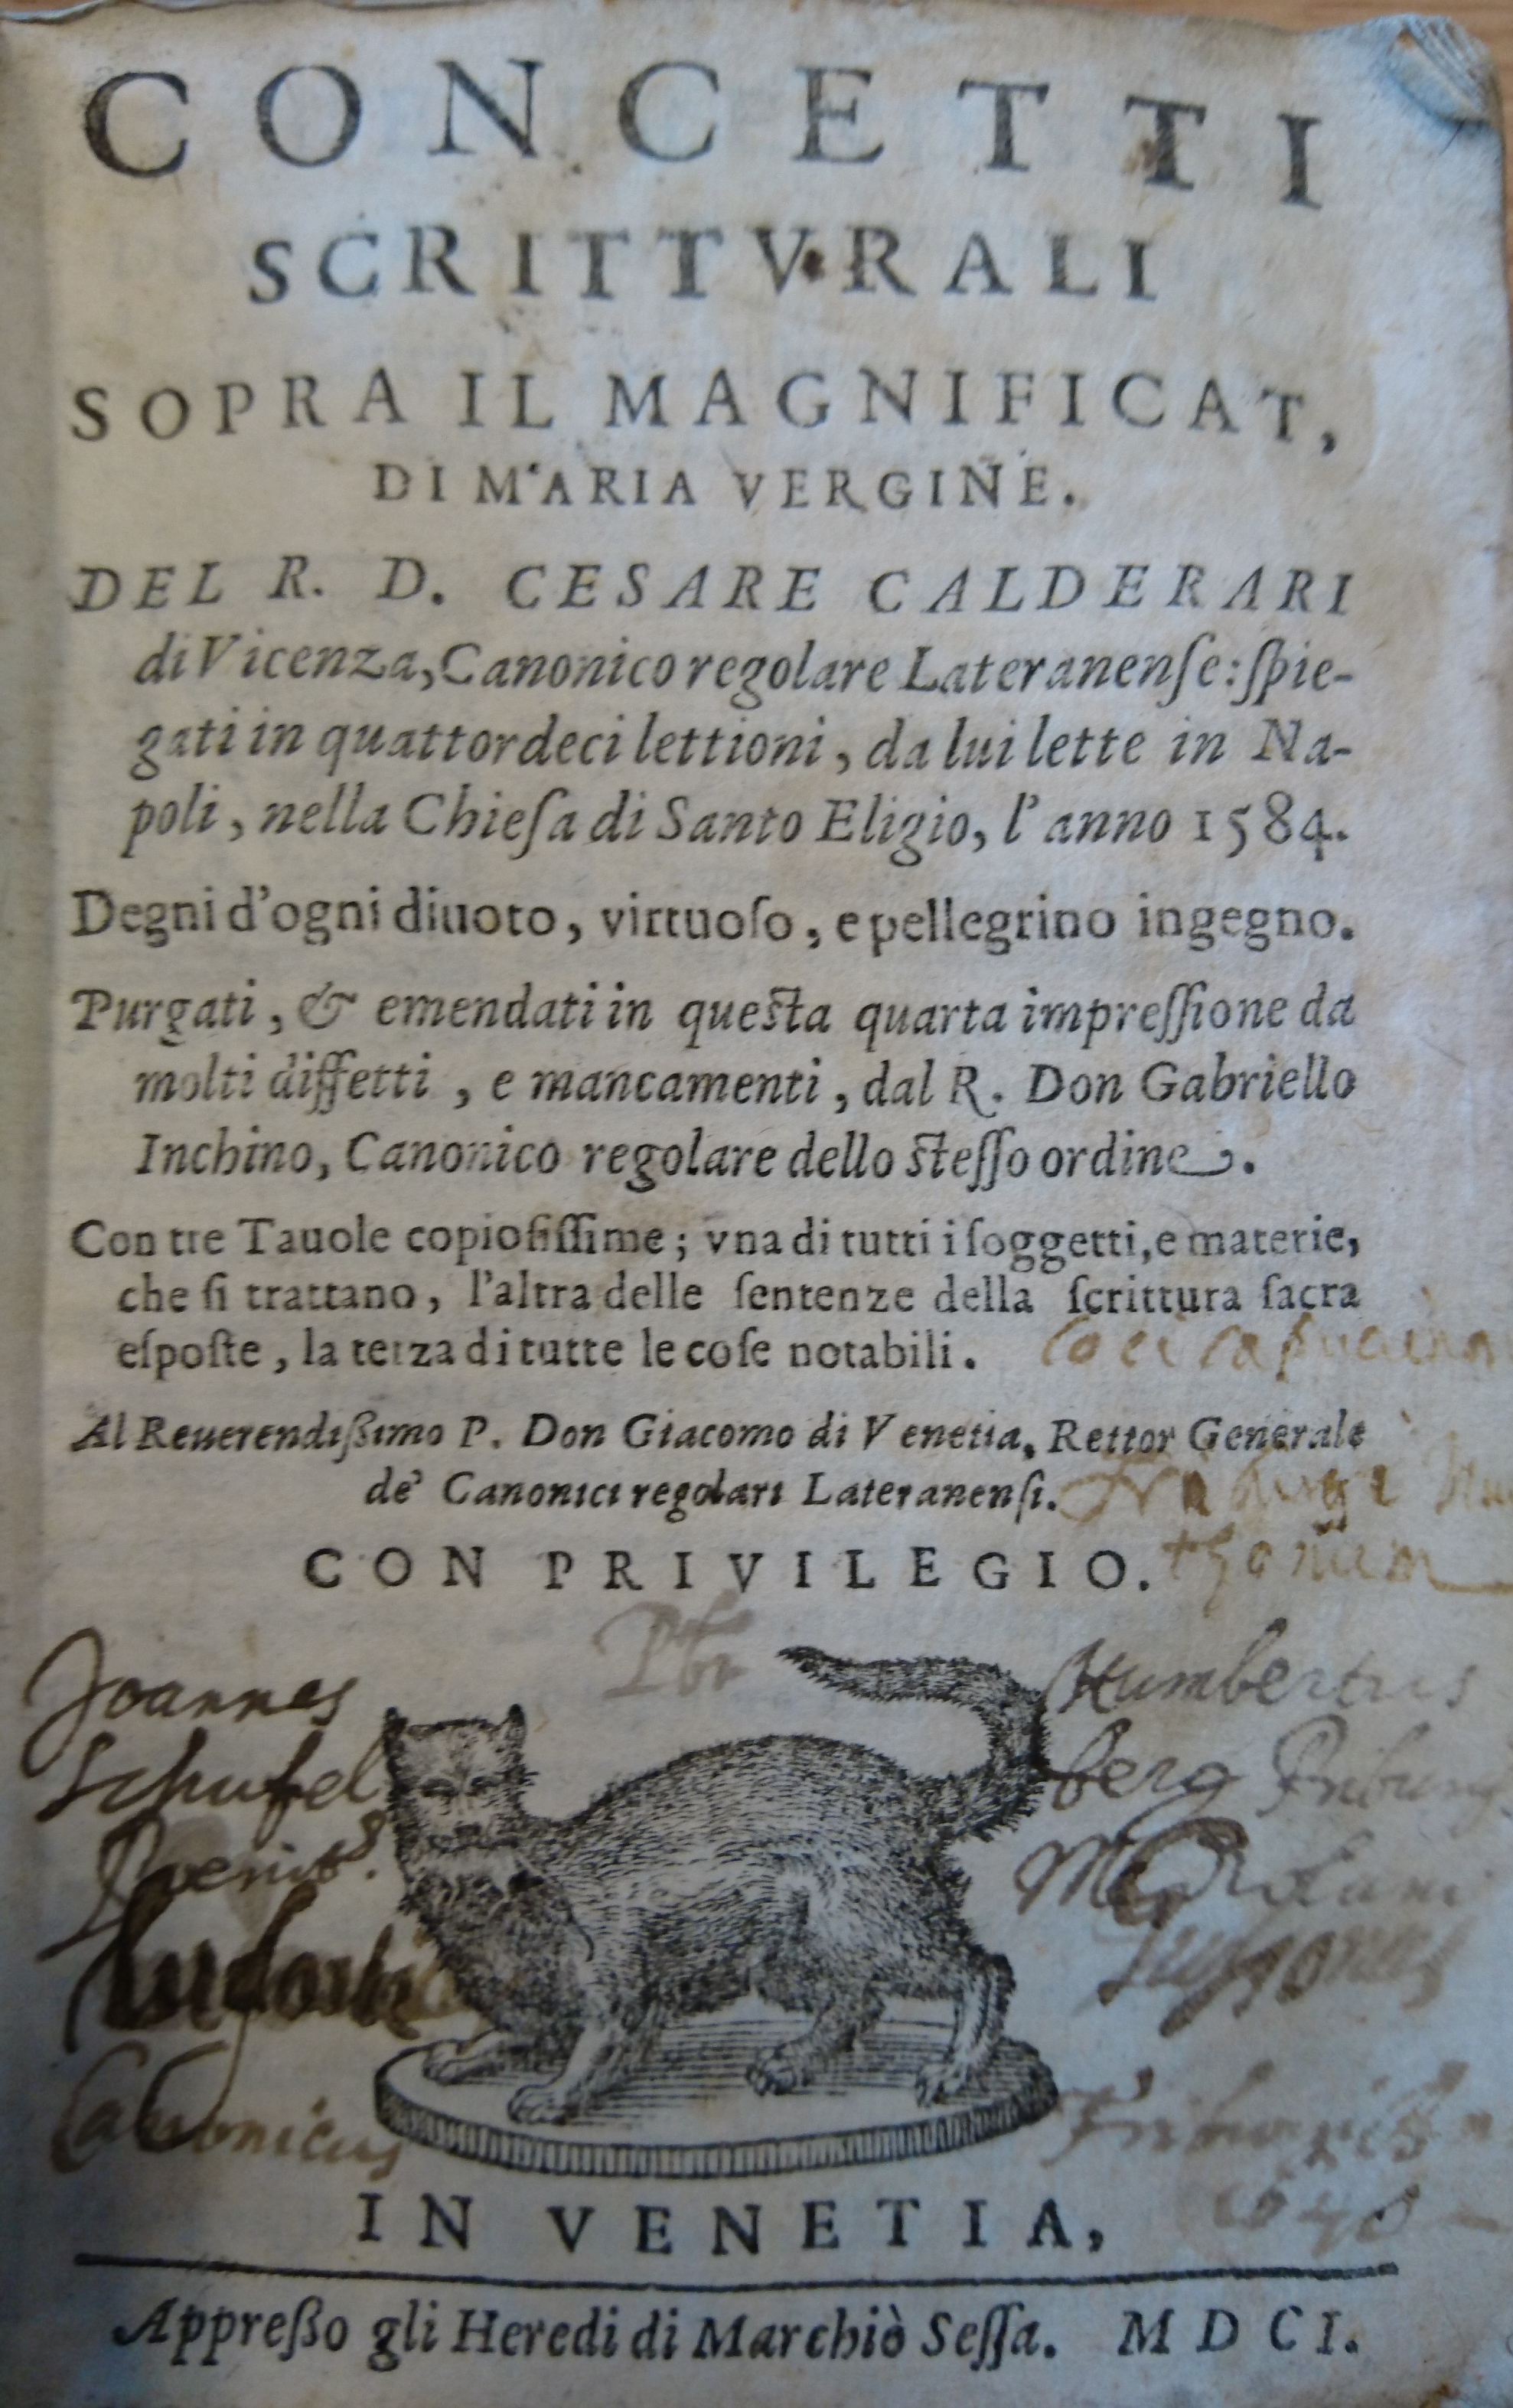 CONCETTI
SCRITTVRALI
SOPRA IL MAGNIFICAT,
DI MARIA VERGINE.
DEL R. D. CESARE CALDERARI
di Vicenza, Canonico regolare Lateranenſe: ſpie-
gati in quattordeci lettioni, da lui lette in Na-
poli, nella Chieſa di Santo Eligio, l'anno 1584.
Degni d'ogni diuoto, virtuoſo, e pellegrino ingegno.
Purgati, & emendati in queſta quarta impreſſione da
molti diffetti, e mancamenti, dal R. Don Gabriello
Inchino, Canonico regolare dello ſteſſo ordine.
Con tre Tauole copioſiſſime; vna di tutti i ſoggetti, e materie,
che ſi trattano, l'altra delle ſentenze della ſcrittura ſacra
eſpoſte, la terza di tutte le coſe notabili.
Al Reuerendißimo P. Don Giacomo di Venetia, Rettor Generale
de' Canonici regolari Lateranenſi.
CON PRIVILEGIO.
Joannes
Humbertus
berg
Canonicus
IN VENETIA,
Appreßo gli Heredi di Marchiò Seſſa. MDCI.